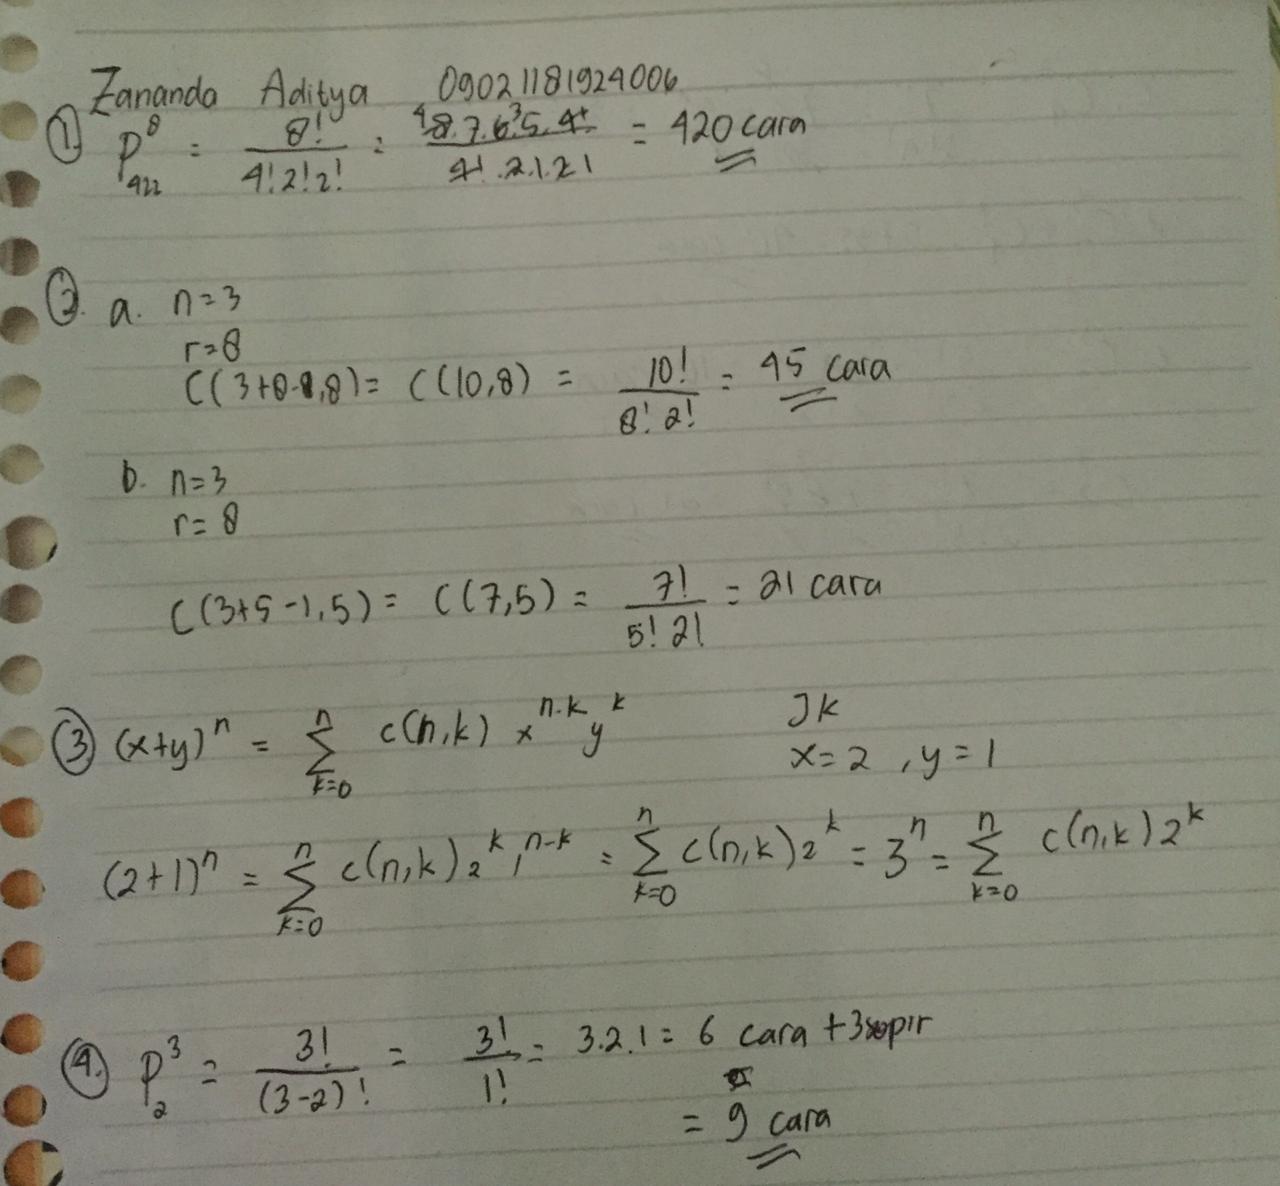 Zananda Aditya 09021181924006
① P⁸₄₂₂ = 8! / 4!2!2! = ⁴8.7.6³.5.4! / 4!.2.1.2.1 = 420 cara
②. a. n=3
r=8
C(3+8-1,8) = C(10,8) = 10! / 8!.2! = 45 cara
b. n=3
r=8
C(3+5-1,5) = C(7,5) = 7! / 5!2! = 21 cara
③ (x+y)ⁿ = Σ(k=0..n) c(n,k) xⁿ⁻ᵏ yᵏ Jk
x=2 , y=1
(2+1)ⁿ = Σ(k=0..n) c(n,k) 2ᵏ 1ⁿ⁻ᵏ = Σ(k=0..n) c(n,k) 2ᵏ = 3ⁿ = Σ(k=0..n) c(n,k) 2ᵏ
④. P³₂ = 3! / (3-2)! = 3! / 1! = 3.2.1 = 6 cara + 3 sopir
= 9 cara